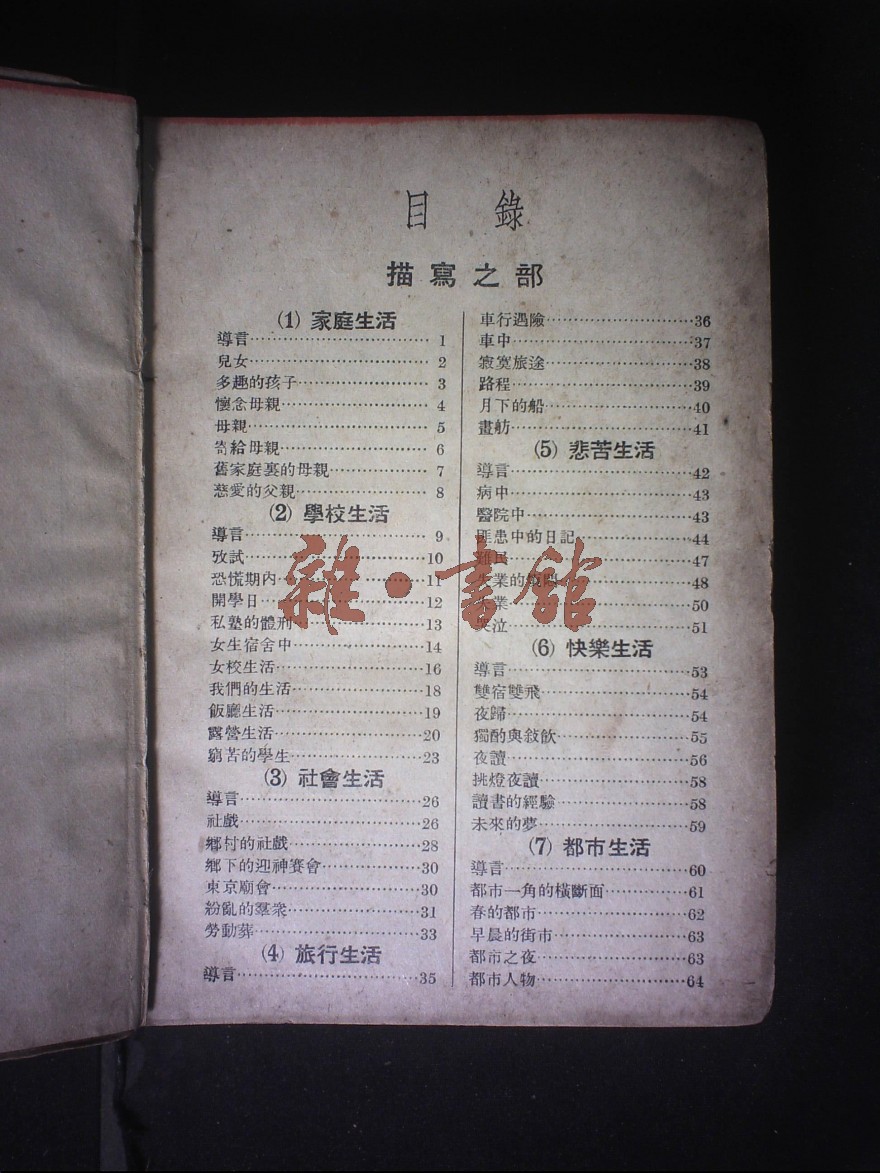 目錄
描寫之部
(1) 家庭生活
導言 1
兒女 2
多趣的孩子 3
懷念母親 4
母親 5
寄給母親 6
舊家庭裏的母親 7
慈愛的父親 8
(2) 學校生活
導言 9
攷試 10
恐慌期內 11
開學日 12
私塾的體刑 13
女生宿舍中 14
女校生活 16
我們的生活 18
飯廳生活 19
露營生活 20
窮苦的學生 23
(3) 社會生活
導言 26
社戲 26
鄉村的社戲 28
鄉下的迎神賽會 30
東京廟會 30
紛亂的羣衆 31
勞動葬 33
(4) 旅行生活
導言 35
車行遇險 36
車中 37
寂寞旅途 38
路程 39
月下的船 40
畫舫 41
(5) 悲苦生活
導言 42
病中 43
醫院中 43
匪患中的日記 44
難民 47
失業的 48
業 50
哭泣 51
(6) 快樂生活
導言 53
雙宿雙飛 54
夜歸 54
獨酌與敍飲 55
夜讀 56
挑燈夜讀 58
讀書的經驗 58
未來的夢 59
(7) 都市生活
導言 60
都市一角的橫斷面 61
春的都市 62
早晨的街市 63
都市之夜 63
都市人物 64
雜·書館